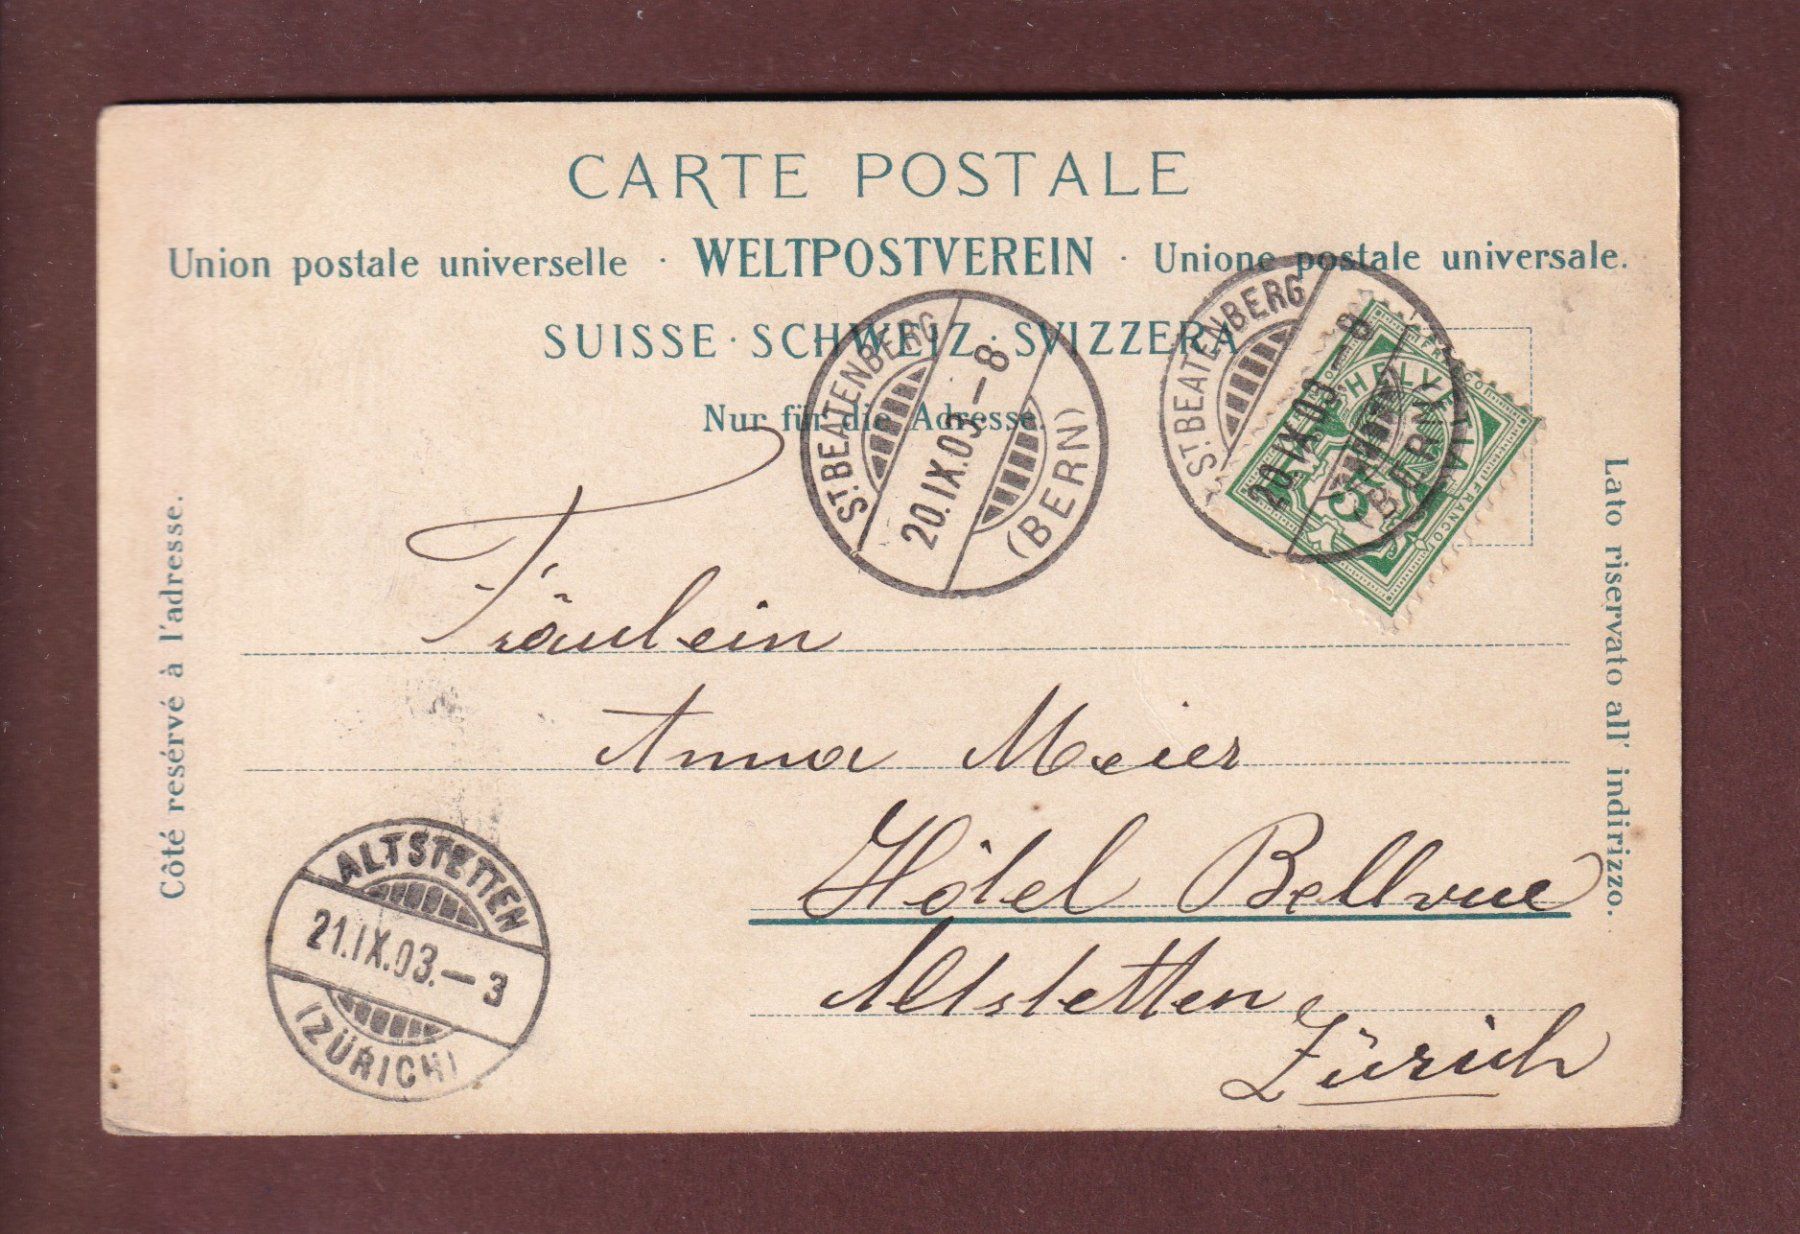 CARTE POSTALE
Union postale universelle · WELTPOSTVEREIN · Unione postale universale.
SUISSE · SCHWEIZ · SVIZZERA
Nur für die Adresse.
ST. BEATENBERG
20.IX.03.–8
(BERN)
ST. BEATENBERG
20.IX.03–8
(BERN)
FRANCO
HELVETIA
5
FRANCO
Côté resérvé à l'adresse.
Lato riservato all' indirizzo.
Fräulein
Anna Meier
Hôtel Bellvue
Altstetten
Zürich
ALTSTETTEN
21.IX.03.–3
(ZÜRICH)